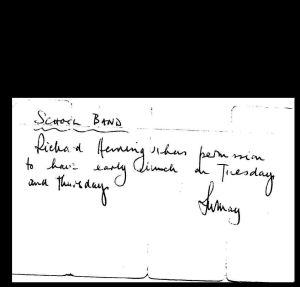 SCHOOL BAND
Richard has permission
to have early lunch on Tuesday
and thursday